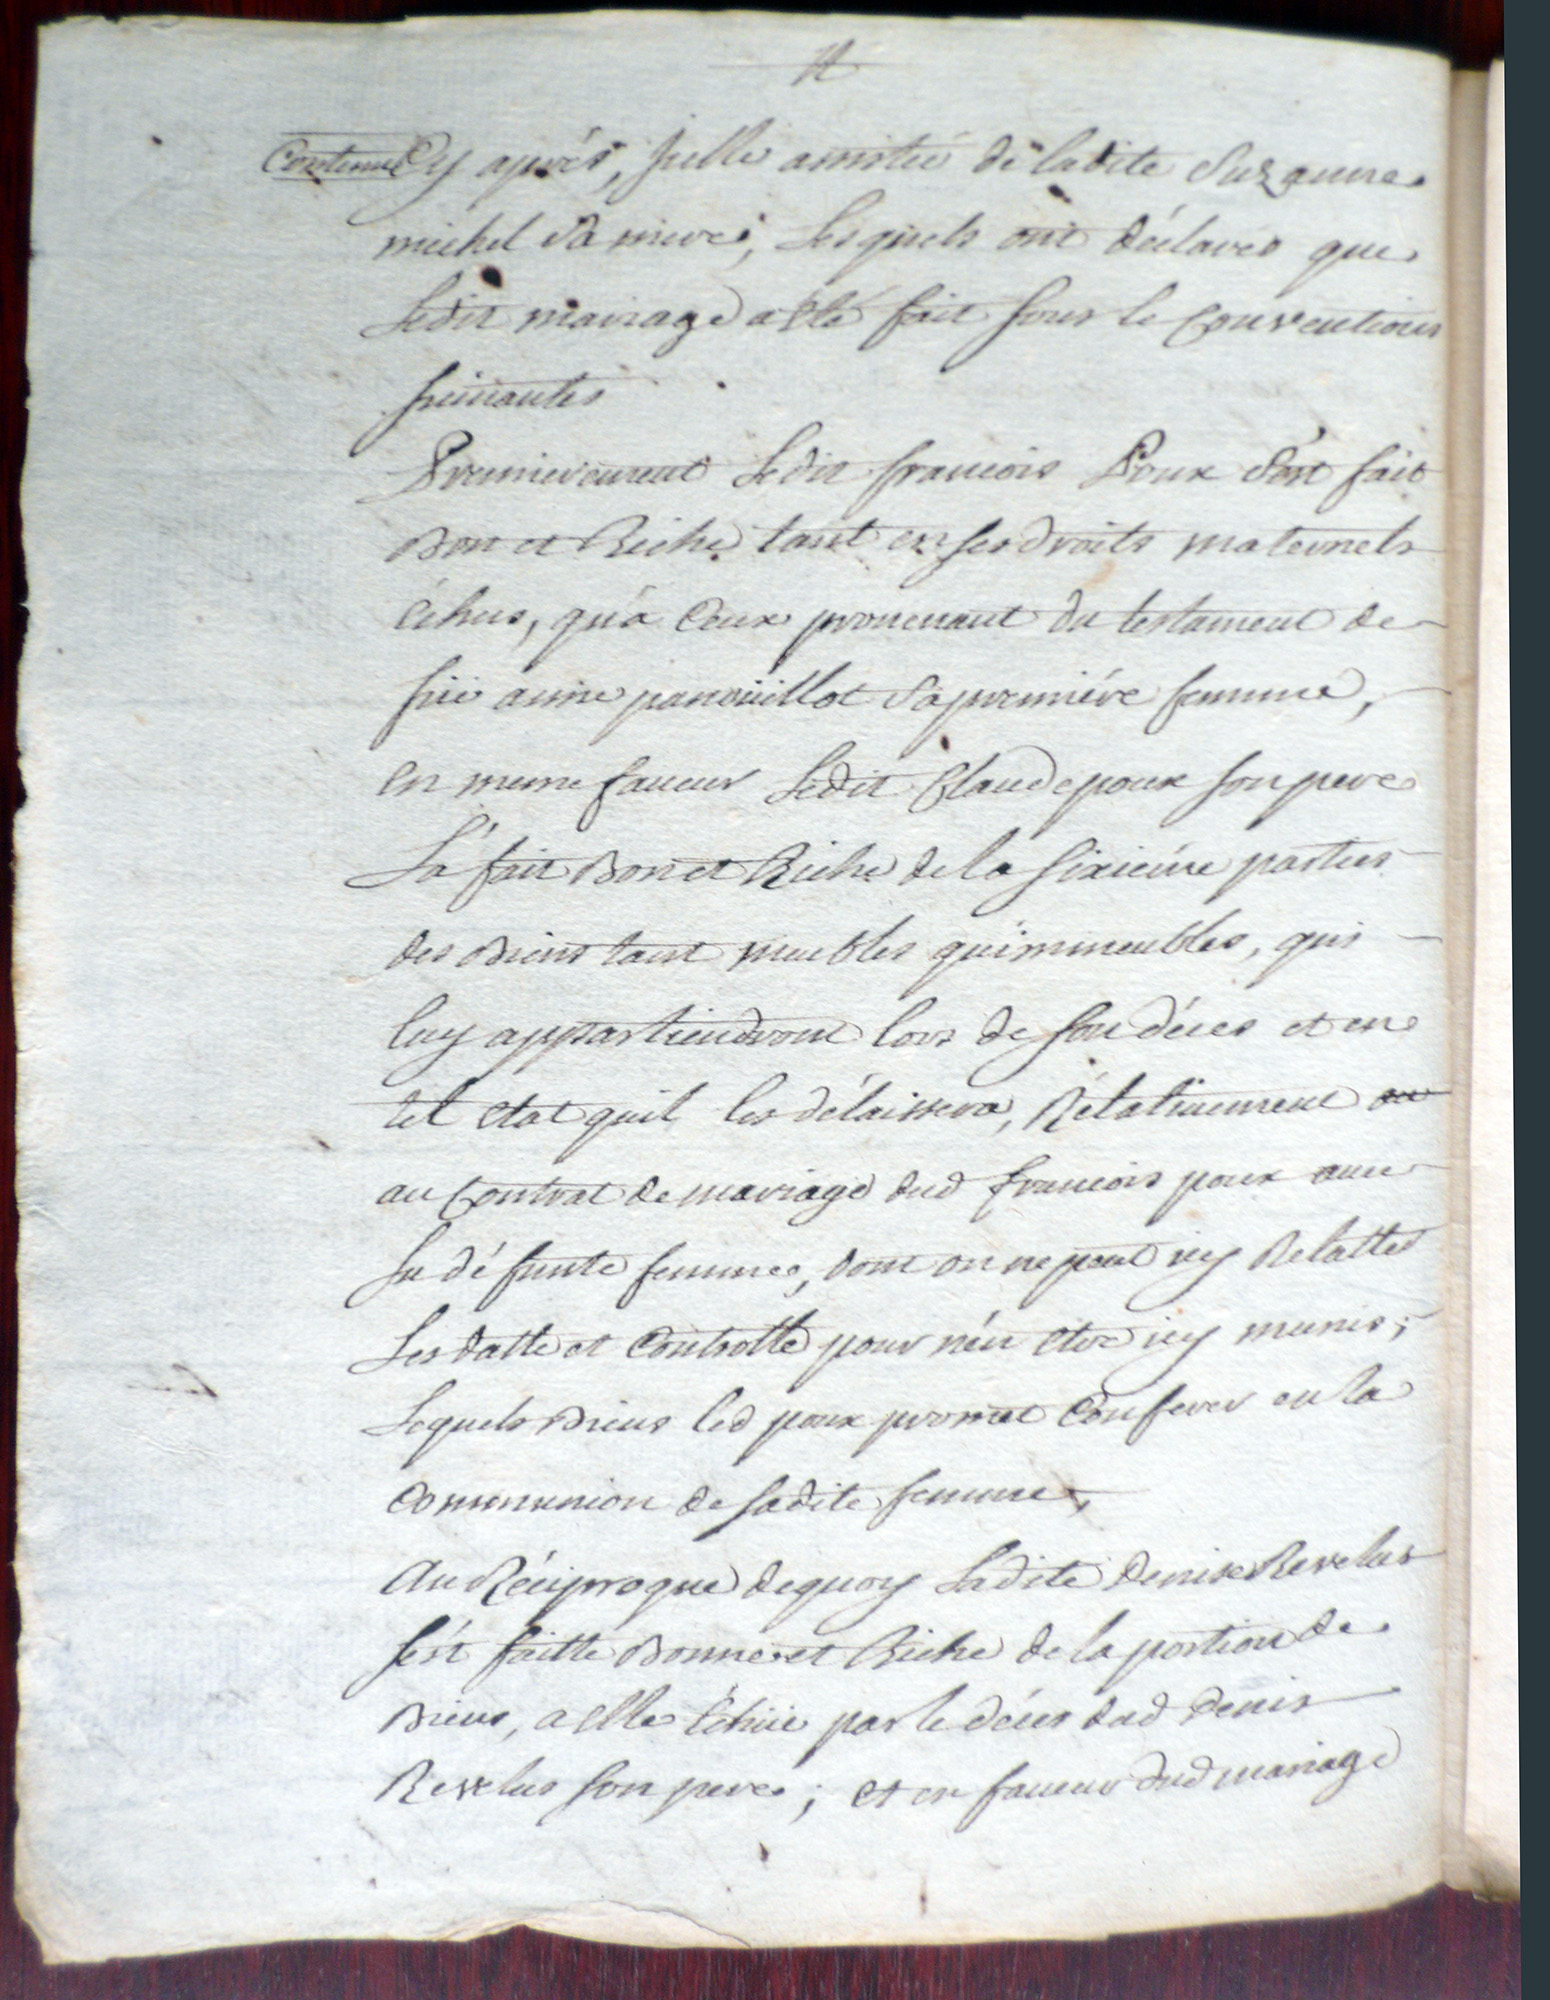 Contenu Cy aprés, Jcelle assistée de ladite Suzanne
michel Sa mere, Lesquels ont déclarés que
Ledit mairage a été fait sous le Conventions
suivantes
Premierement Ledit francois Poux s'est fait
Bon et Riche tant en ses droits maternels
échus, qu'a Ceux provenant du testament de
füe anne panoüillot Sa premiére femme,
En meme faveur Ledit Claude poux son pere
L'a fait Bon et Riche de la sixiéme parties
des Biens tant meubles qu'immeubles, qui
luy appartiendront lors de son déces et en
tel etat quil les délaissera, Rélativement
au Contrat de mariage dud francois poux avec
sa défunte femme, dont on ne peut icy Relatter
Les datte et Controlle pour n'en etre icy munis;
Lesquels Biens led poux promet Conferer en la
Communion de sadite femme,
Au Réciproque dequoy Ladite Denise Revelus
s'est faitte Bonne et Riche de la portion de
Biens, a elle échüe par le déces dud Denis
Revelus son pere; et en faveur dud mariage